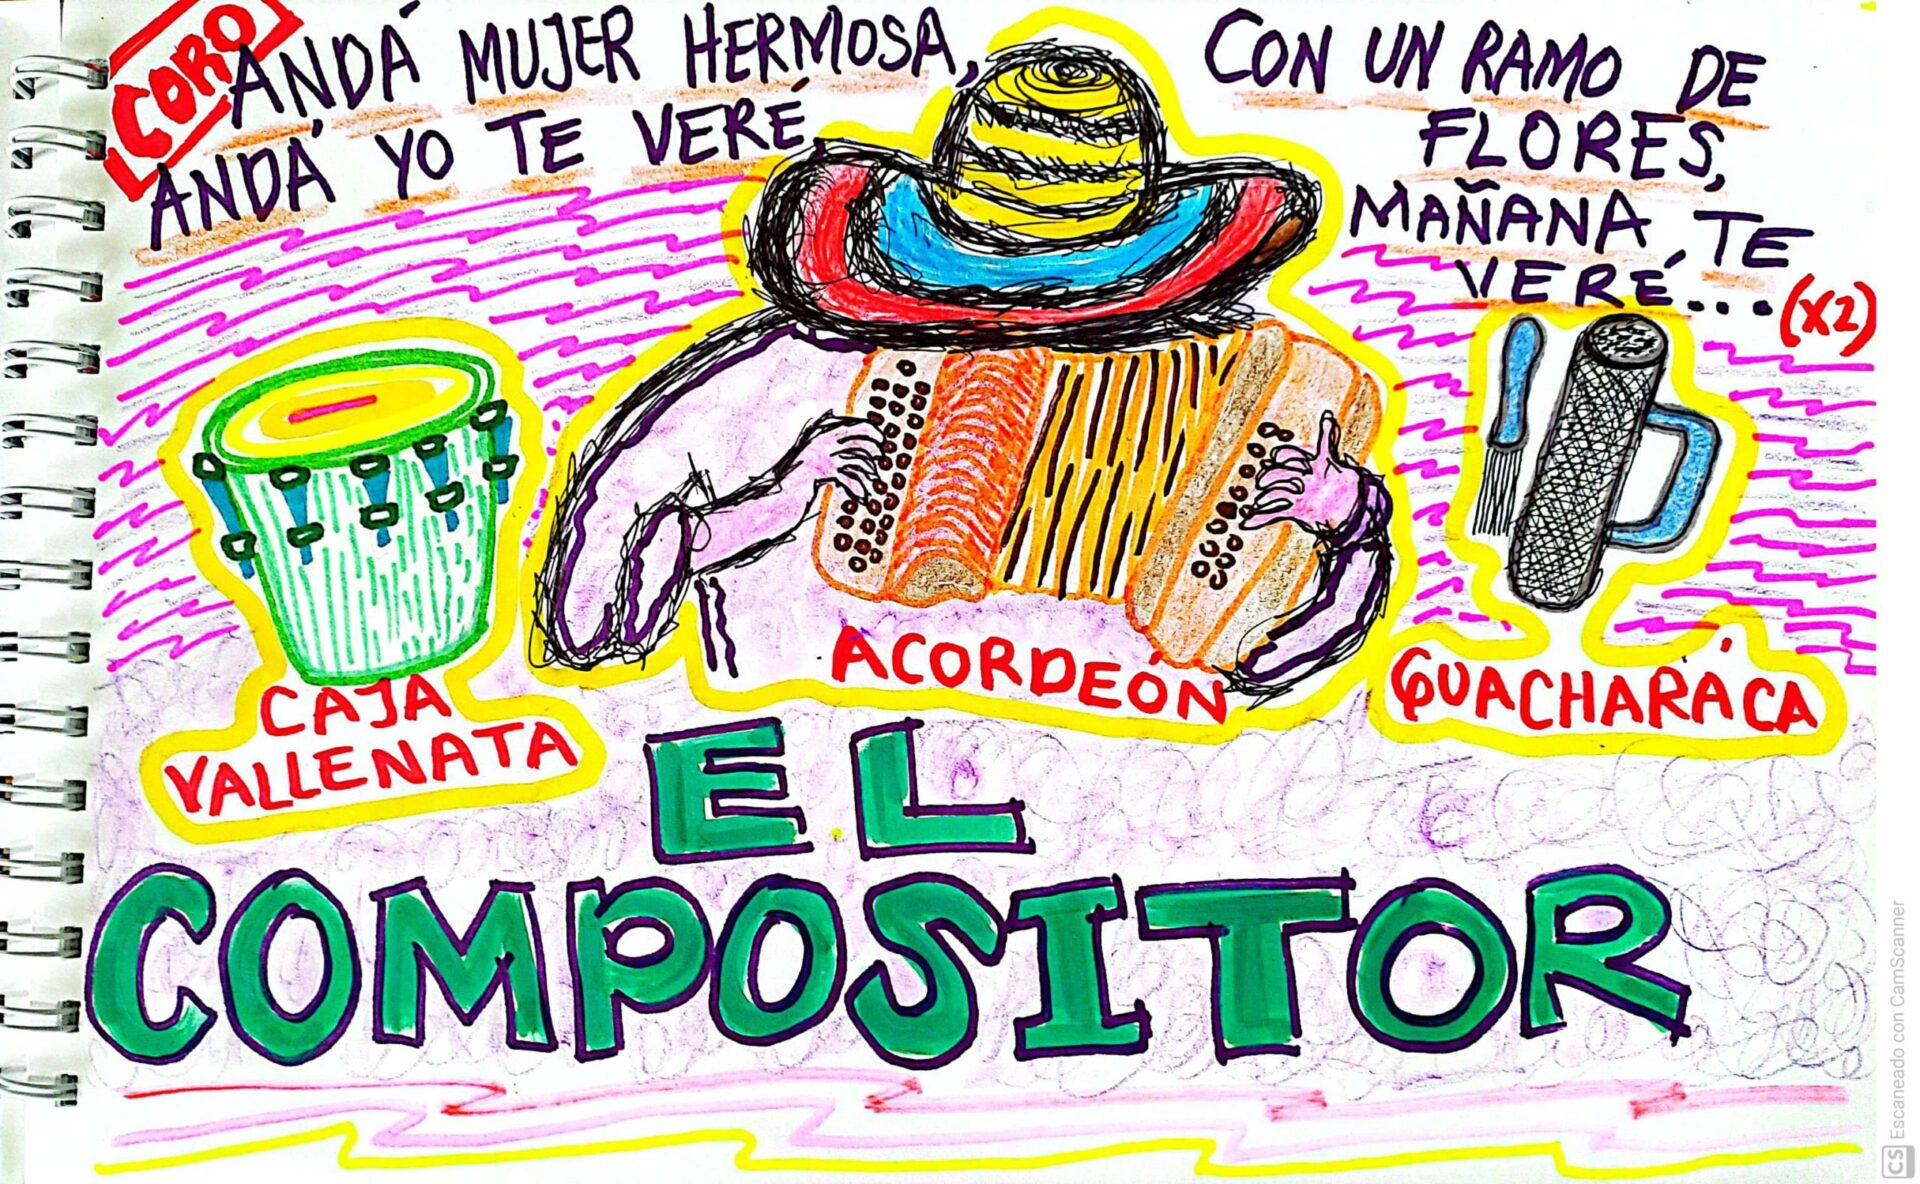 CORO
ANDÁ MUJER HERMOSA,
ANDÁ YO TE VERÉ,
CON UN RAMO DE
FLORES,
MAÑANA TE
VERÉ... (X2)
CAJA
VALLENATA
ACORDEÓN
GUACHARÁCA
EL
COMPOSITOR
CS Escaneado con CamScanner